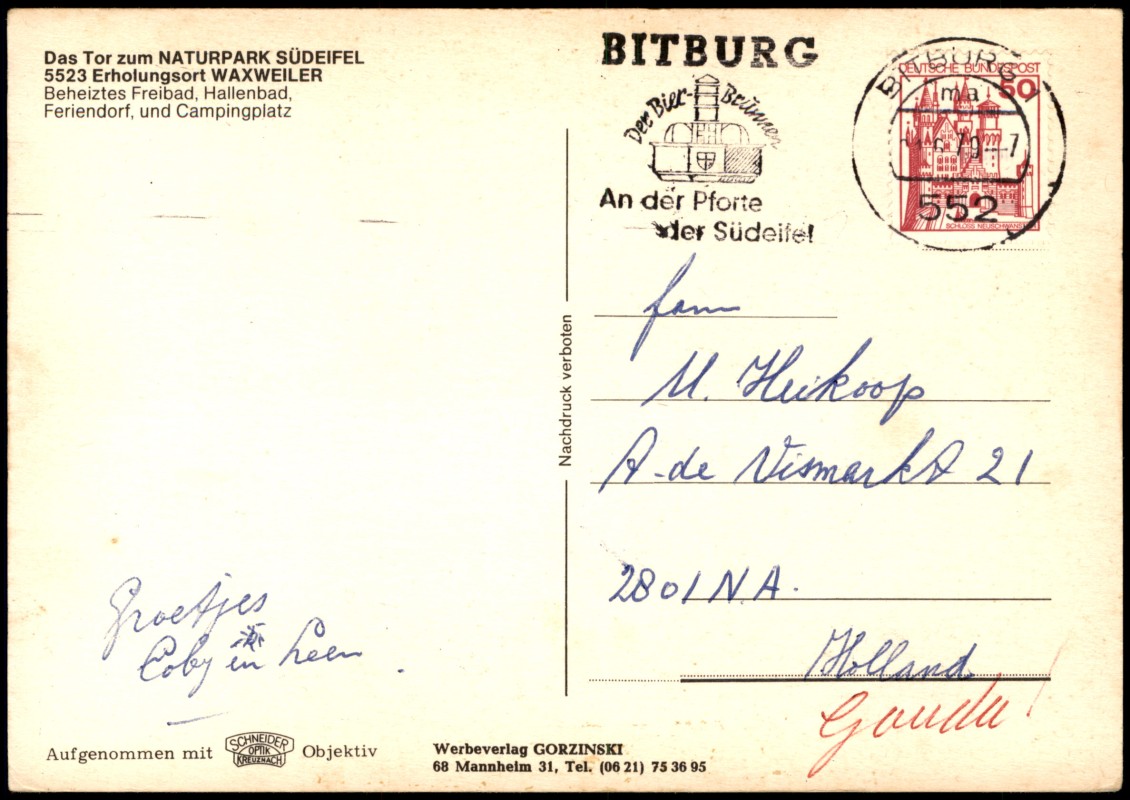 Das Tor zum NATURPARK SÜDEIFEL
5523 Erholungsort WAXWEILER
Beheiztes Freibad, Hallenbad,
Feriendorf, und Campingplatz
BITBURG
Der Bier-Brunnen
An der Pforte
der Südeifel
BITBURG 1
ma
79-7
552
DEUTSCHE BUNDESPOST
50
SCHLOSS NEUSCHWANSTEIN
Nachdruck verboten
fam
M. Heikoop
A-de Vismarkt 21
2801 NA.
Holland
Gouda!
Groetjes
Coby en Leen.
Aufgenommen mit SCHNEIDER OPTIK KREUZNACH Objektiv
Werbeverlag GORZINSKI
68 Mannheim 31, Tel. (06 21) 75 36 95